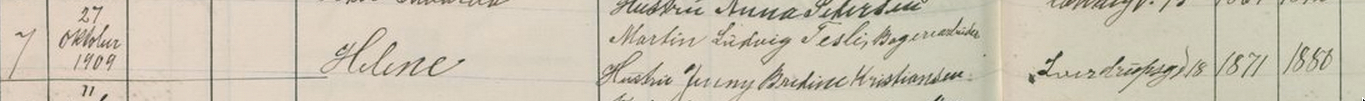 27
Hustru Anna Pedersen
7 Oktober 1909 Helene Martin Ludvig Tesli, Bageriarbeider
Hustru Jenny Bredine Kristiansen Sverdrupsgd 18 1871 1880
11